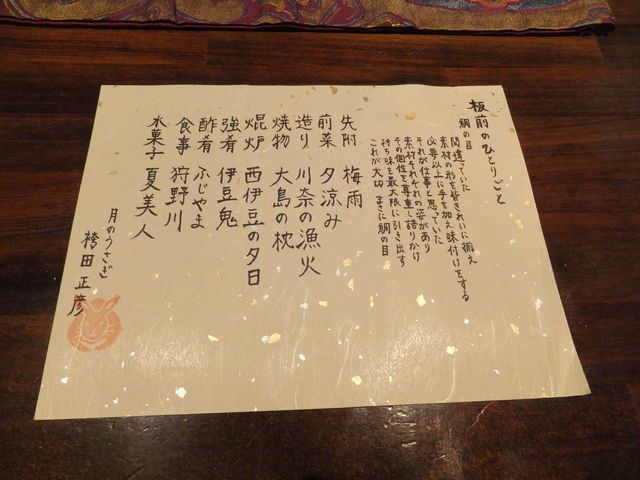 板前のひとりごと
鯛の目
間違っていた
素材の形を皆きれいに揃え
必要以上に手を加え味付けをする
それが仕事と思っていた
素材それぞれの姿があり
その個性を尊重し語りかけ
持ち味を最大限に引き出す
これが大切 まさに鯛の目
先附 梅雨
前菜 夕涼み
造り 川奈の漁火
焼物 大島の枕
焜炉 西伊豆の夕日
強肴 伊豆鬼
酢肴 ふじやま
食事 狩野川
水菓子 夏美人
月のうさぎ
袴田 正彦